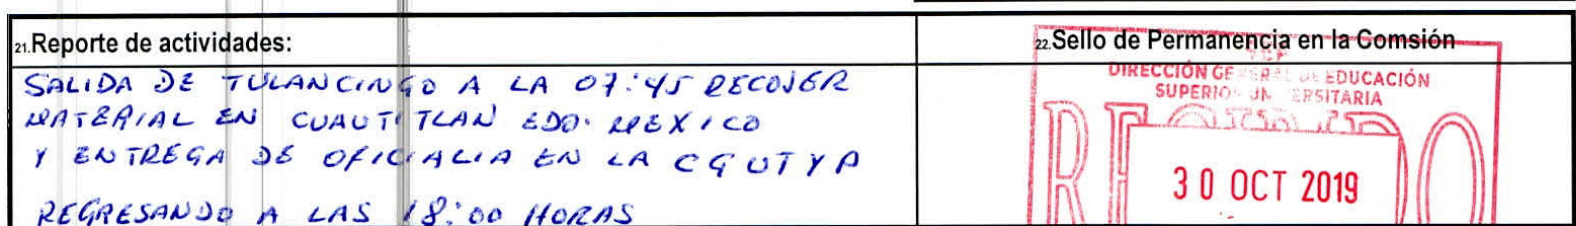 21.Reporte de actividades:
SALIDA DE TULANCINGO A LA 07:45 RECOJER
MATERIAL EN CUAUTITLAN EDO. MEXICO
Y ENTREGA DE OFICIALIA EN LA CGUTYP
REGRESANDO A LAS 18:00 HORAS
22.Sello de Permanencia en la Comsión
SEP
DIRECCIÓN GENERAL DE EDUCACIÓN
SUPERIOR UNIVERSITARIA
RECIBIDO
30 OCT 2019